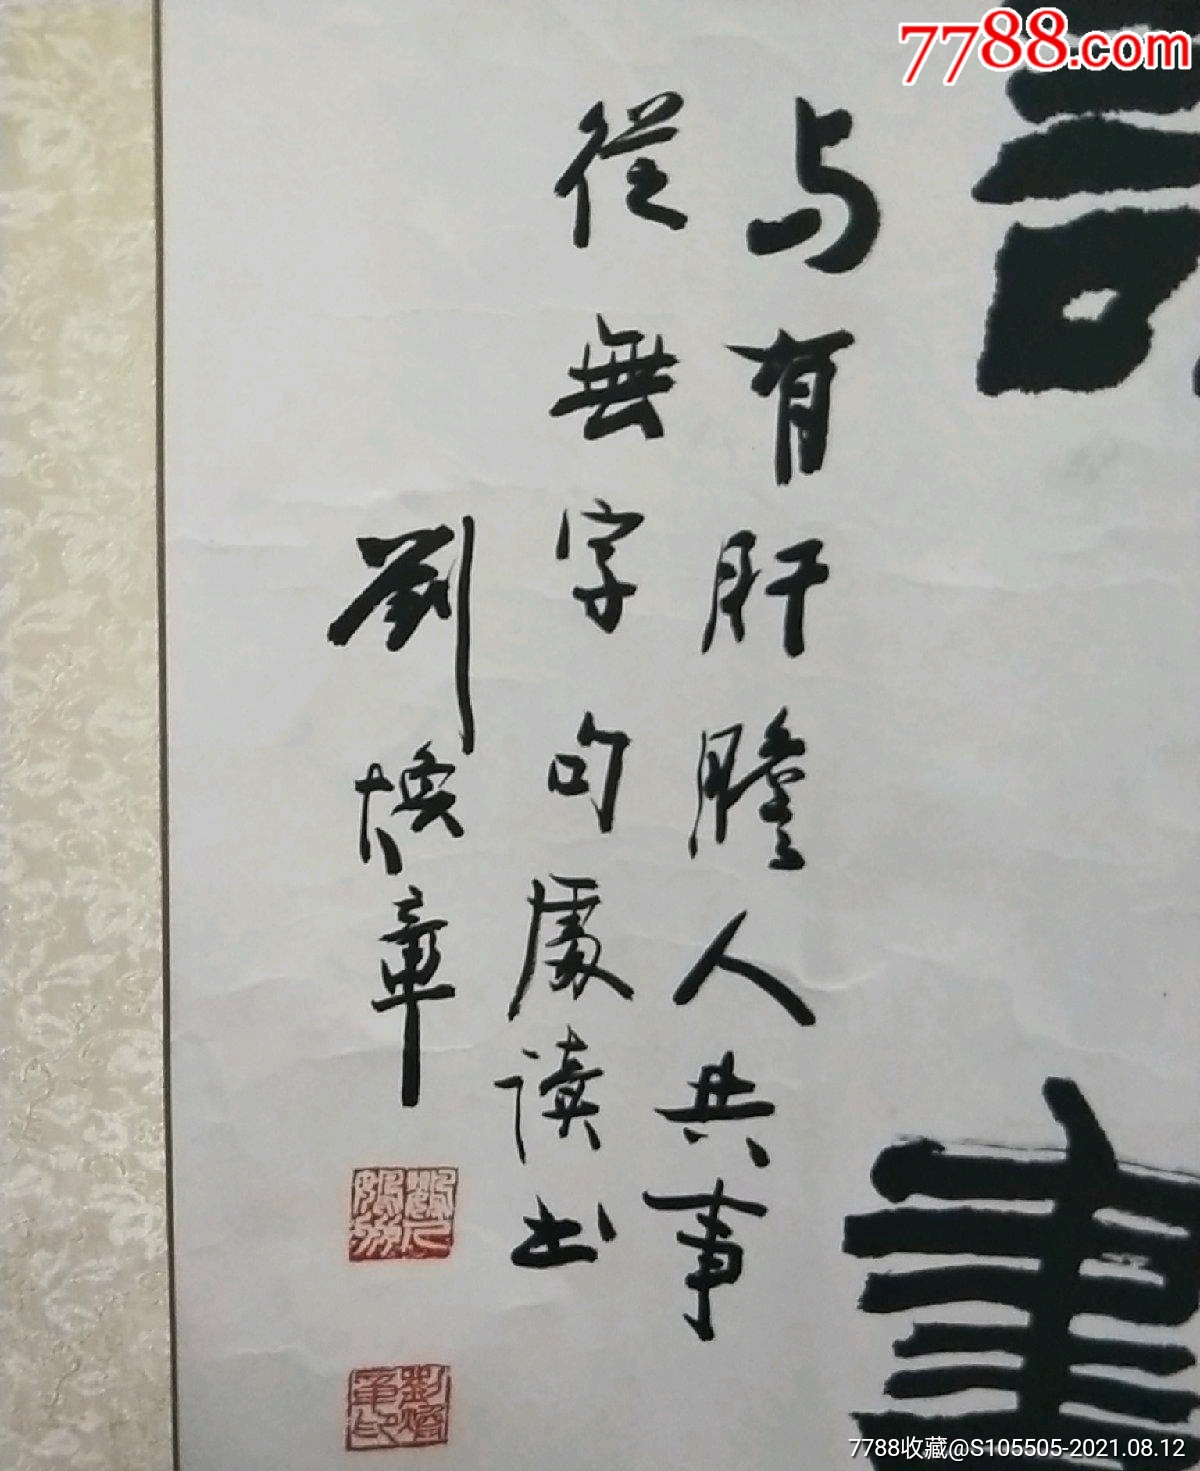 7788.com
与有肝膽人共事
從無字句處读书
劉焕章
劉焕章印
7788收藏@S105505-2021.08.12